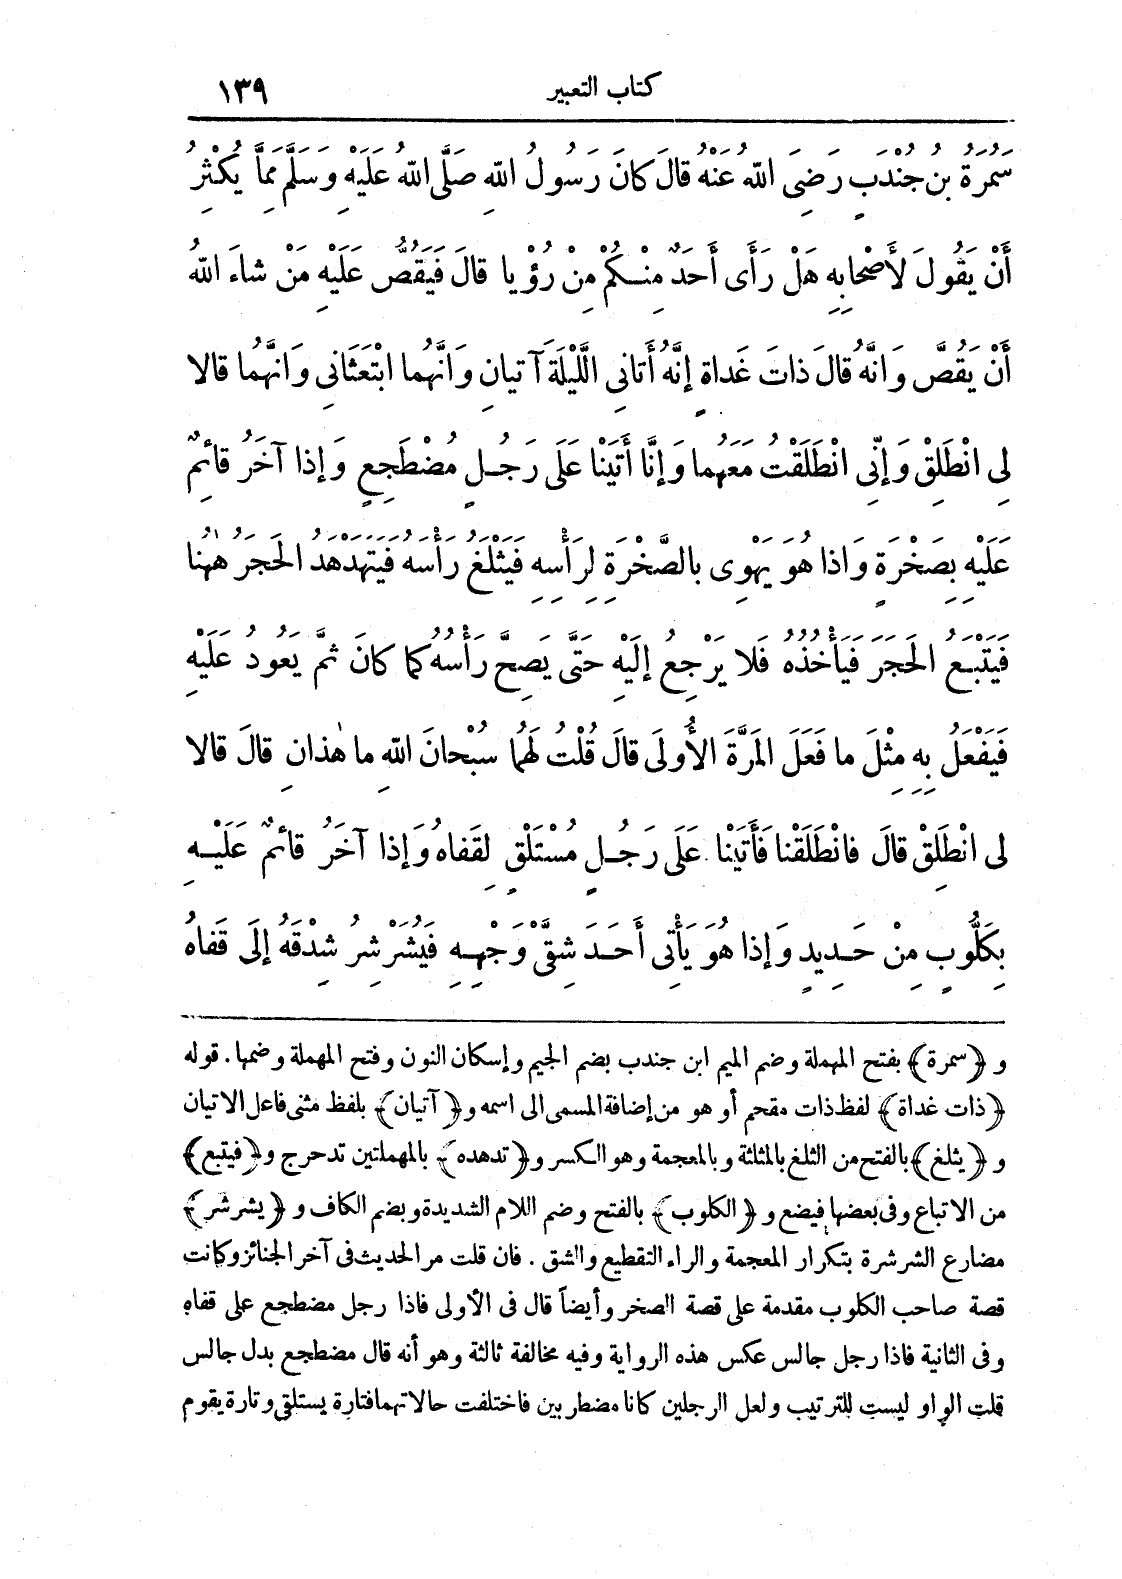 كتاب التعبير ١٣٩
سَمُرَةُ بنُ جُنْدَبٍ رَضِىَ اللهُ عَنْهُ قالَ كانَ رَسُولُ اللهِ صَلَّى اللهُ عَلَيْهِ وَسَلَّم مِمَّا يُكْثِرُ
أَنْ يَقُولَ لأَصْحابِهِ هَلْ رَأَى أَحَدٌ مِنْكُمْ مِنْ رُؤْيا قالَ فَيَقُصُّ عَلَيْهِ مَنْ شاءَ اللهُ
أَنْ يَقُصَّ وَانَّهُ قالَ ذاتَ غَداةٍ إنَّهُ أَتانِى اللَّيْلَةَ آتيانِ وَانَّهُما ابْتَعَثانِى وَانَّهُما قالا
لِى انْطَلِقْ وَإنّى انْطَلَقْتُ مَعَهُما وَإنَّا أَتَيْنا عَلَى رَجُلٍ مُضْطَجِعٍ وَإذا آخَرُ قائمٌ
عَلَيْهِ بِصَخْرَةٍ وَاذا هُوَ يَهْوِى بالصَّخْرَةِ لِرَأْسِهِ فَيَثْلَغُ رَأْسَهُ فَيَتَهَدْهَدُ الحَجَرُ هٰهُنا
فَيَتْبَعُ الحَجَرَ فَيَأْخُذُهُ فَلا يَرْجِعُ إلَيْهِ حَتَّى يَصِحَّ رَأْسُهُ كما كانَ ثُمَّ يَعُودُ عَلَيْهِ
فَيَفْعَلُ بِهِ مِثْلَ ما فَعَلَ المَرَّةَ الأُولَى قالَ قُلْتُ لَهُما سُبْحانَ اللهِ ما هٰذانِ قالَ قالا
لى انْطَلِقْ قالَ فانْطَلَقْنا فَأَتَيْنا عَلَى رَجُلٍ مُسْتَلْقٍ لِقَفاهُ وَإذا آخَرُ قائمٌ عَلَيْهِ
بِكَلُّوبٍ مِنْ حَدِيدٍ وَإذا هُوَ يَأْتِى أَحَدَ شِقَّىْ وَجْهِهِ فَيُشَرْشِرُ شِدْقَهُ إلَى قَفاهُ
و ﴿سمرة﴾ بفتح المهملة وضم الميم ابن جندب بضم الجيم وإسكان النون وفتح المهملة وضمها. قوله
﴿ذات غداة﴾ لفظ ذات مقحم أو هو من إضافة المسمى الى اسمه و﴿آتيان﴾ بلفظ مثنى فاعل الاتيان
و ﴿يثلغ﴾ بالفتح من الثلغ بالمثلثة وبالمعجمة وهو الكسر و﴿تدهده﴾ بالمهملتين تدحرج و﴿فيتبع﴾
من الاتباع وفى بعضها فيضع و ﴿الكلوب﴾ بالفتح وضم اللام الشديدة وبضم الكاف و ﴿يشرشر﴾
مضارع الشرشرة بتكرار المعجمة والراء التقطيع والشق . فان قلت مر الحديث فى آخر الجنائز وكانت
قصة صاحب الكلوب مقدمة على قصة الصخر وأيضاً قال فى الأولى فاذا رجل مضطجع على قفاه
وفى الثانية فاذا رجل جالس عكس هذه الرواية وفيه مخالفة ثالثة وهو أنه قال مضطجع بدل جالس
قلت الواو ليست للترتيب ولعل الرجلين كانا مضطربين فاختلفت حالاتهما فتارة يستلقى وتارة يقوم